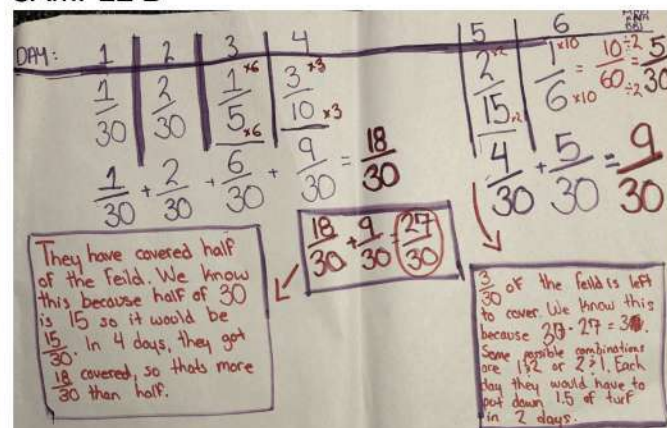 DAY: 1 2 3 4 5 6
1/30 2/30 1/5 ×6 ×6 3/10 ×3 ×3
1/30 + 2/30 + 6/30 + 9/30 = 18/30
2/15 ×2 ×2 1/6 ×10 ×10 = 10/60 ÷2 ÷2 = 5/30
4/30 + 5/30 = 9/30
18/30 + 9/30 = 27/30
They have covered half
of the feild. We know
this because half of 30
is 15 so it would be
15/30. In 4 days, they got
18/30 covered, so thats more
than half.
3/30 of the feild is left
to cover. We know this
because 30 - 27 = 3.
Some possible combinations
are 1÷2 or 2÷1. Each
day they would have to
put down 1.5 of turf
in 2 days.